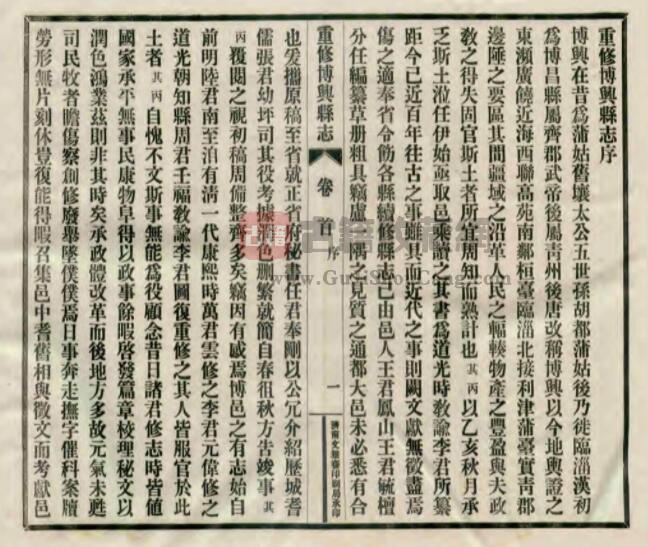 重修博興縣志序
博興在昔爲蒲姑舊壤太公五世孫胡都蒲姑後乃徙臨淄漢初
爲博昌縣屬齊郡武帝後屬青州後唐改稱博興以今地輿證之
東瀕廣饒近海西聯高苑南鄰桓臺臨淄北接利津蒲臺實青郡
邊陲之要區其間疆域之沿革人民之輻輳物產之豐盈與夫政
敎之得失固官斯土者所宜周知而熟計也其丙以乙亥秋月承
乏斯土涖任伊始亟取邑乘讀之其書爲道光時敎諭李君所纂
距今已近百年往古之事難具而近代之事則闕文獻無徵盡焉
傷之適奉省令飭各縣續修縣志已由邑人王君鳳山王君毓檀
分任編纂草册粗具竊慮一隅之見質之通都大邑未必悉有合
重修博興縣志
卷首 序
一
濟南文雅齋印刷局承印
也爰攜原稿至省就正省府秘書任君奉剛以公冗介紹歷城耆
儒張君幼坪司其役考據 色删繁就簡自春徂秋方告竣事其
丙覆閱之視初稿周備整齊多矣竊因有感焉博邑之有志始自
前明陸君南至洎有清一代康熙時萬君雲修之李君元偉修之
道光朝知縣周君壬福敎諭李君圖復重修之其人皆服官於此
土者其丙自愧不文斯事無能爲役顧念昔日諸君修志時皆值
國家承平無事民康物阜得以政事餘暇啓發篇章校理秘文以
潤色鴻業茲則非其時矣承政體改革而後地方多故元氣未甦
司民牧者瞻傷察創修廢舉墜僕僕焉日事奔走撫字催科案牘
勞形無片刻休豈復能得暇召集邑中耆舊相與徵文而考獻邑
古籍收藏網
www.GuJiShouCang.Com